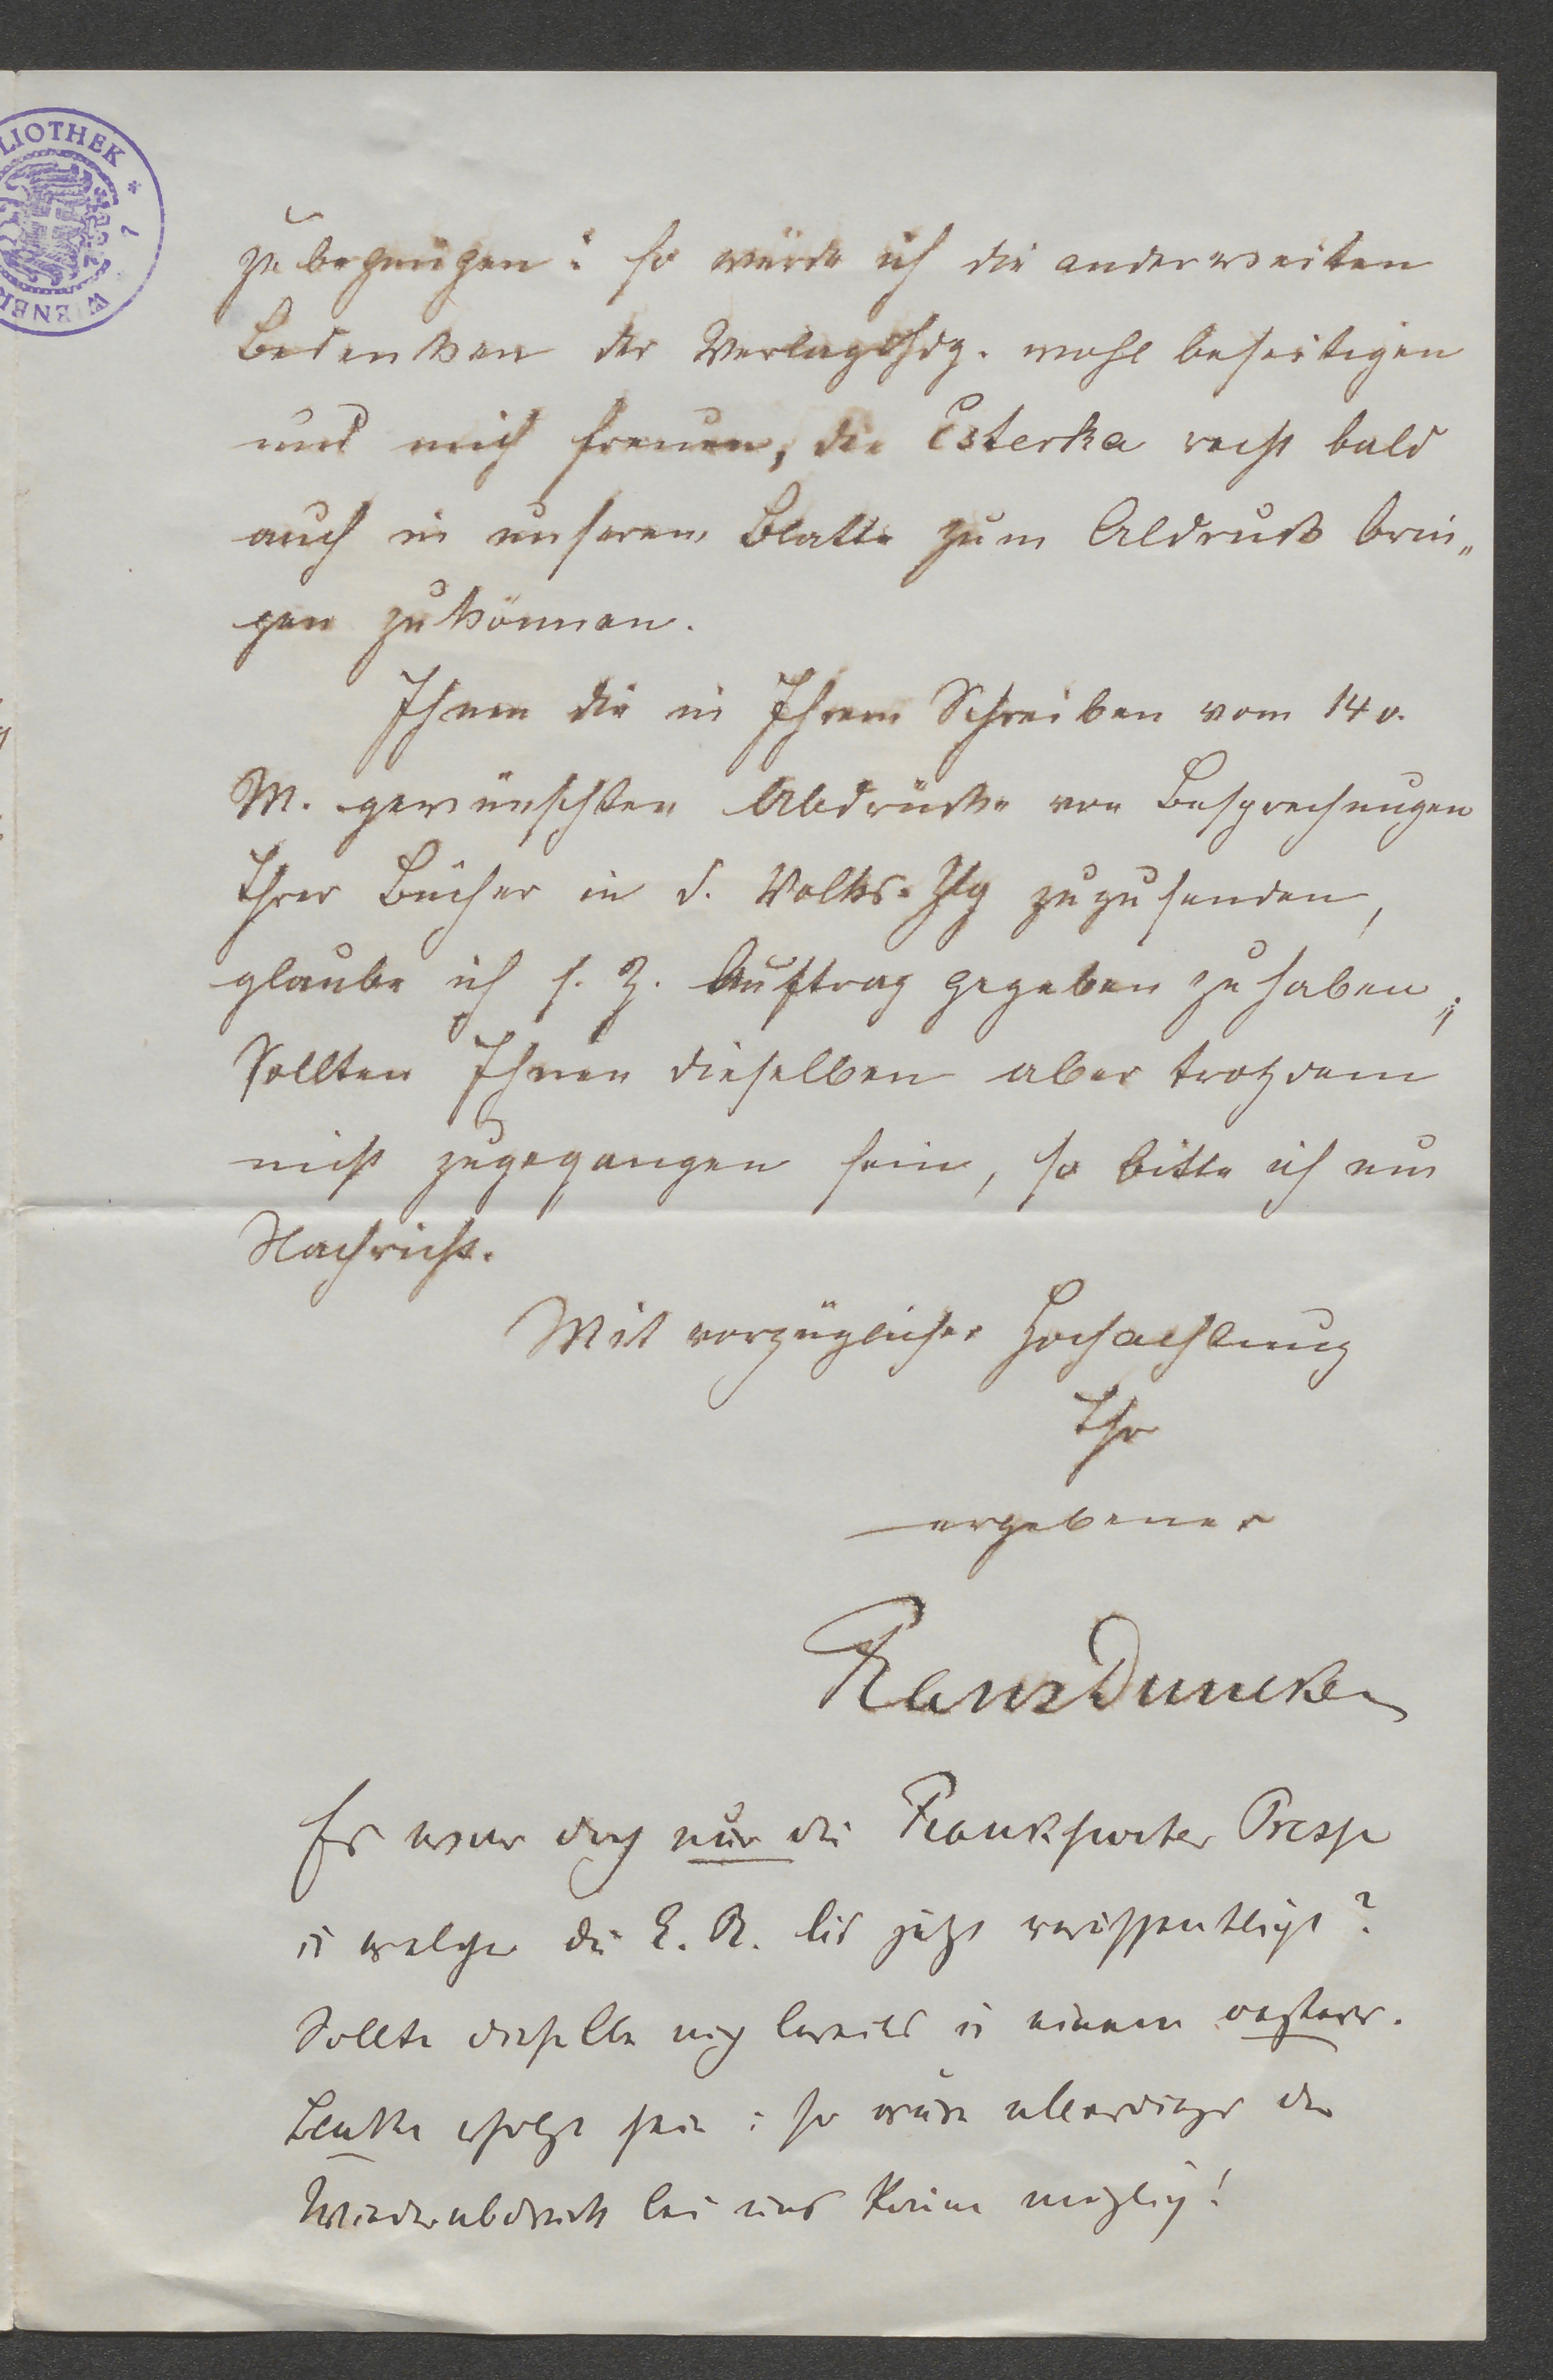 LIOTHEK * 1
WIENER
zu begnügen: so würde ich die anderweiten
Bedenken der Verlagshdg. wohl beseitigen
und mich freuen, die Esterka recht bald
auch in unserem Blatte zum Abdruck brin„
gen zu können.
Ihnen die in Ihrem Schreiben vom 14 v.
M. gewünschten Abdrücke von Besprechungen
Ihrer Bücher in d. Volks-Ztg zuzusenden,
glaube ich s. Z. Auftrag gegeben zu haben;
Sollten Ihnen dieselben aber trotzdem
nicht zugegangen sein, so bitte ich um
Nachricht.
Mit vorzüglicher Hochachtung
Ihr
ergebener
Franz Duncker
Es war doch nur die Frankfurter Presse
in welcher die E. R. bis jetzt veröffentlicht?
Sollte dieselbe noch bereits in einem oesterr.
Blatte erfolgt sein: so wäre allerdings der
Wiederabdruck bei uns kaum möglich!